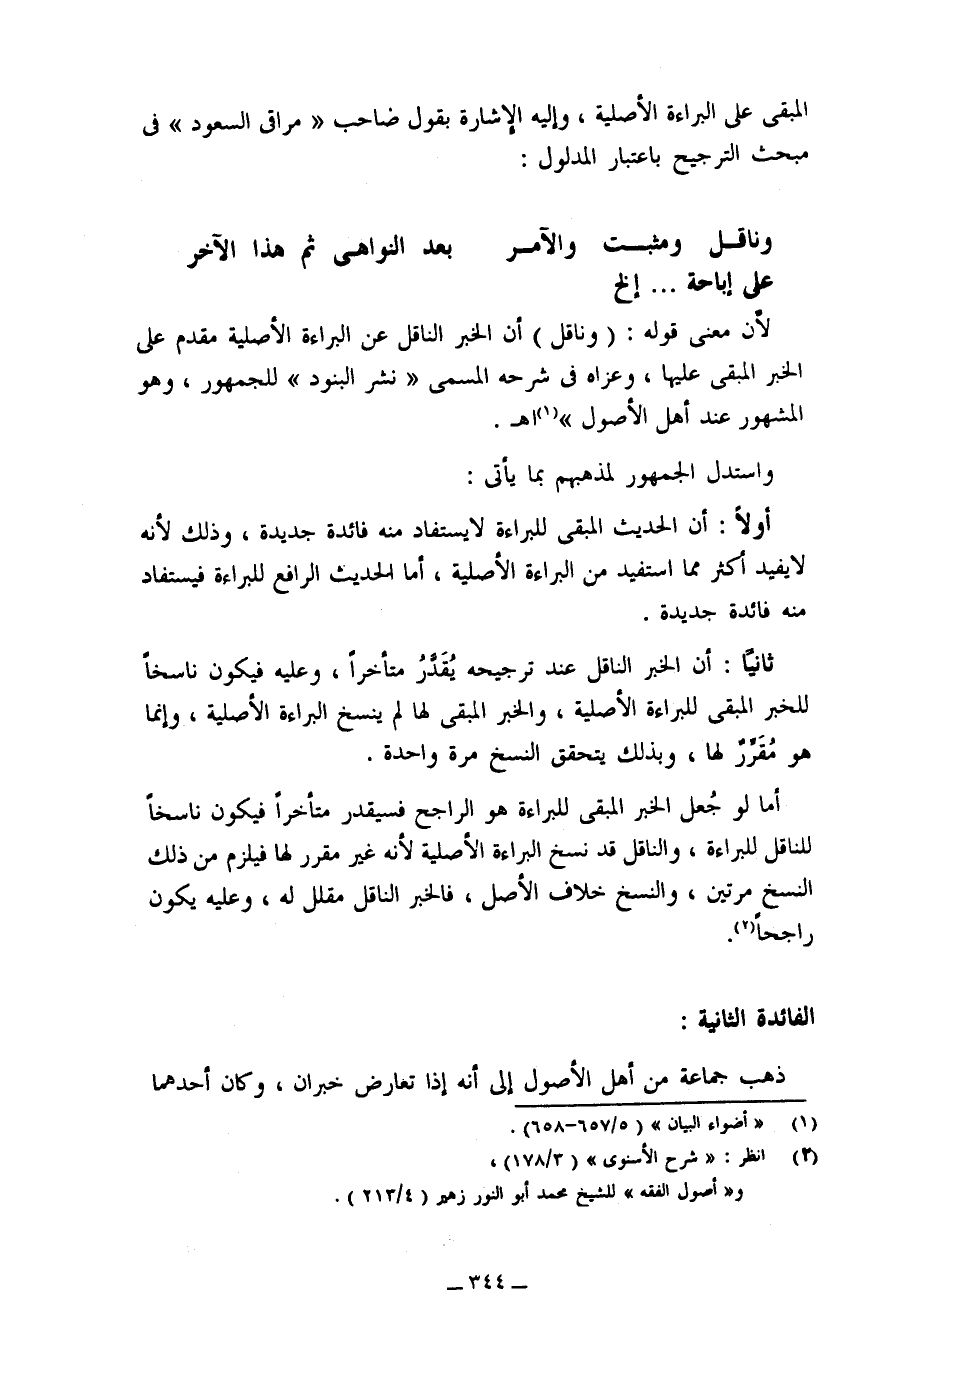 المبقى على البراءة الأصلية ، وإليه الإشارة بقول ضاحب « مراقى السعود » فى
مبحث الترجيح باعتبار المدلول :
وناقـل ومثبـت والآمـر بعد النواهـى ثم هذا الآخر
على إباحة ... إلخ
لأن معنى قوله : ( وناقل ) أن الخبر الناقل عن البراءة الأصلية مقدم على
الخبر المبقى عليها ، وعزاه فى شرحه المسمى « نشر البنود » للجمهور ، وهو
المشهور عند أهل الأصول »(١)اهـ .
واستدل الجمهور لمذهبهم بما يأتى :
أولاً : أن الحديث المبقى للبراءة لايستفاد منه فائدة جديدة ، وذلك لأنه
لايفيد أكثر مما استفيد من البراءة الأصلية ، أما الحديث الرافع للبراءة فيستفاد
منه فائدة جديدة .
ثانيًا : أن الخبر الناقل عند ترجيحه يُقَدَّرُ متأخراً ، وعليه فيكون ناسخاً
للخبر المبقى للبراءة الأصلية ، والخبر المبقى لها لم ينسخ البراءة الأصلية ، وإنما
هو مُقَرِّرٌ لها ، وبذلك يتحقق النسخ مرة واحدة .
أما لو جُعل الخبر المبقى للبراءة هو الراجح فسيقدر متأخراً فيكون ناسخاً
للناقل للبراءة ، والناقل قد نسخ البراءة الأصلية لأنه غير مقرر لها فيلزم من ذلك
النسخ مرتين ، والنسخ خلاف الأصل ، فالخبر الناقل مقلل له ، وعليه يكون
راجحاً(٢).
الفائدة الثانية :
ذهب جماعة من أهل الأصول إلى أنه إذا تعارض خبران ، وكان أحدهما
(١) « أضواء البيان » ( ٦٥٧/٥–٦٥٨) .
(٢) انظر : « شرح الأسنوى » ( ١٧٨/٣) ،
و« أصول الفقه » للشيخ محمد أبو النور زهير ( ٢١٣/٤ ) .
ــ ٣٤٤ ــ